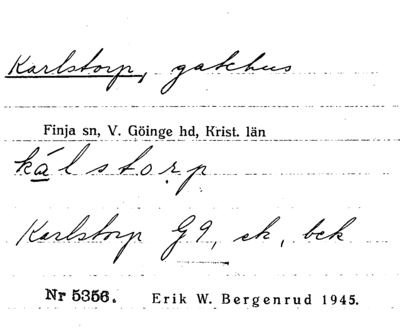 Karlstorp, gatehus
Finja sn, V. Göinge hd, Krist. län
kálstorp
Karlstorp G9, ek, bck
Nr 5356. Erik W. Bergenrud 1945.